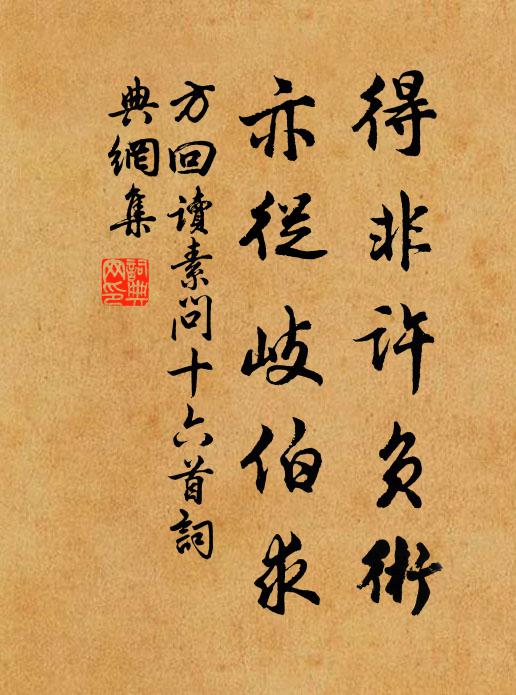 得非許負術
亦從岐伯求
方回讀素問十六首詞
典網集
詞典
网印